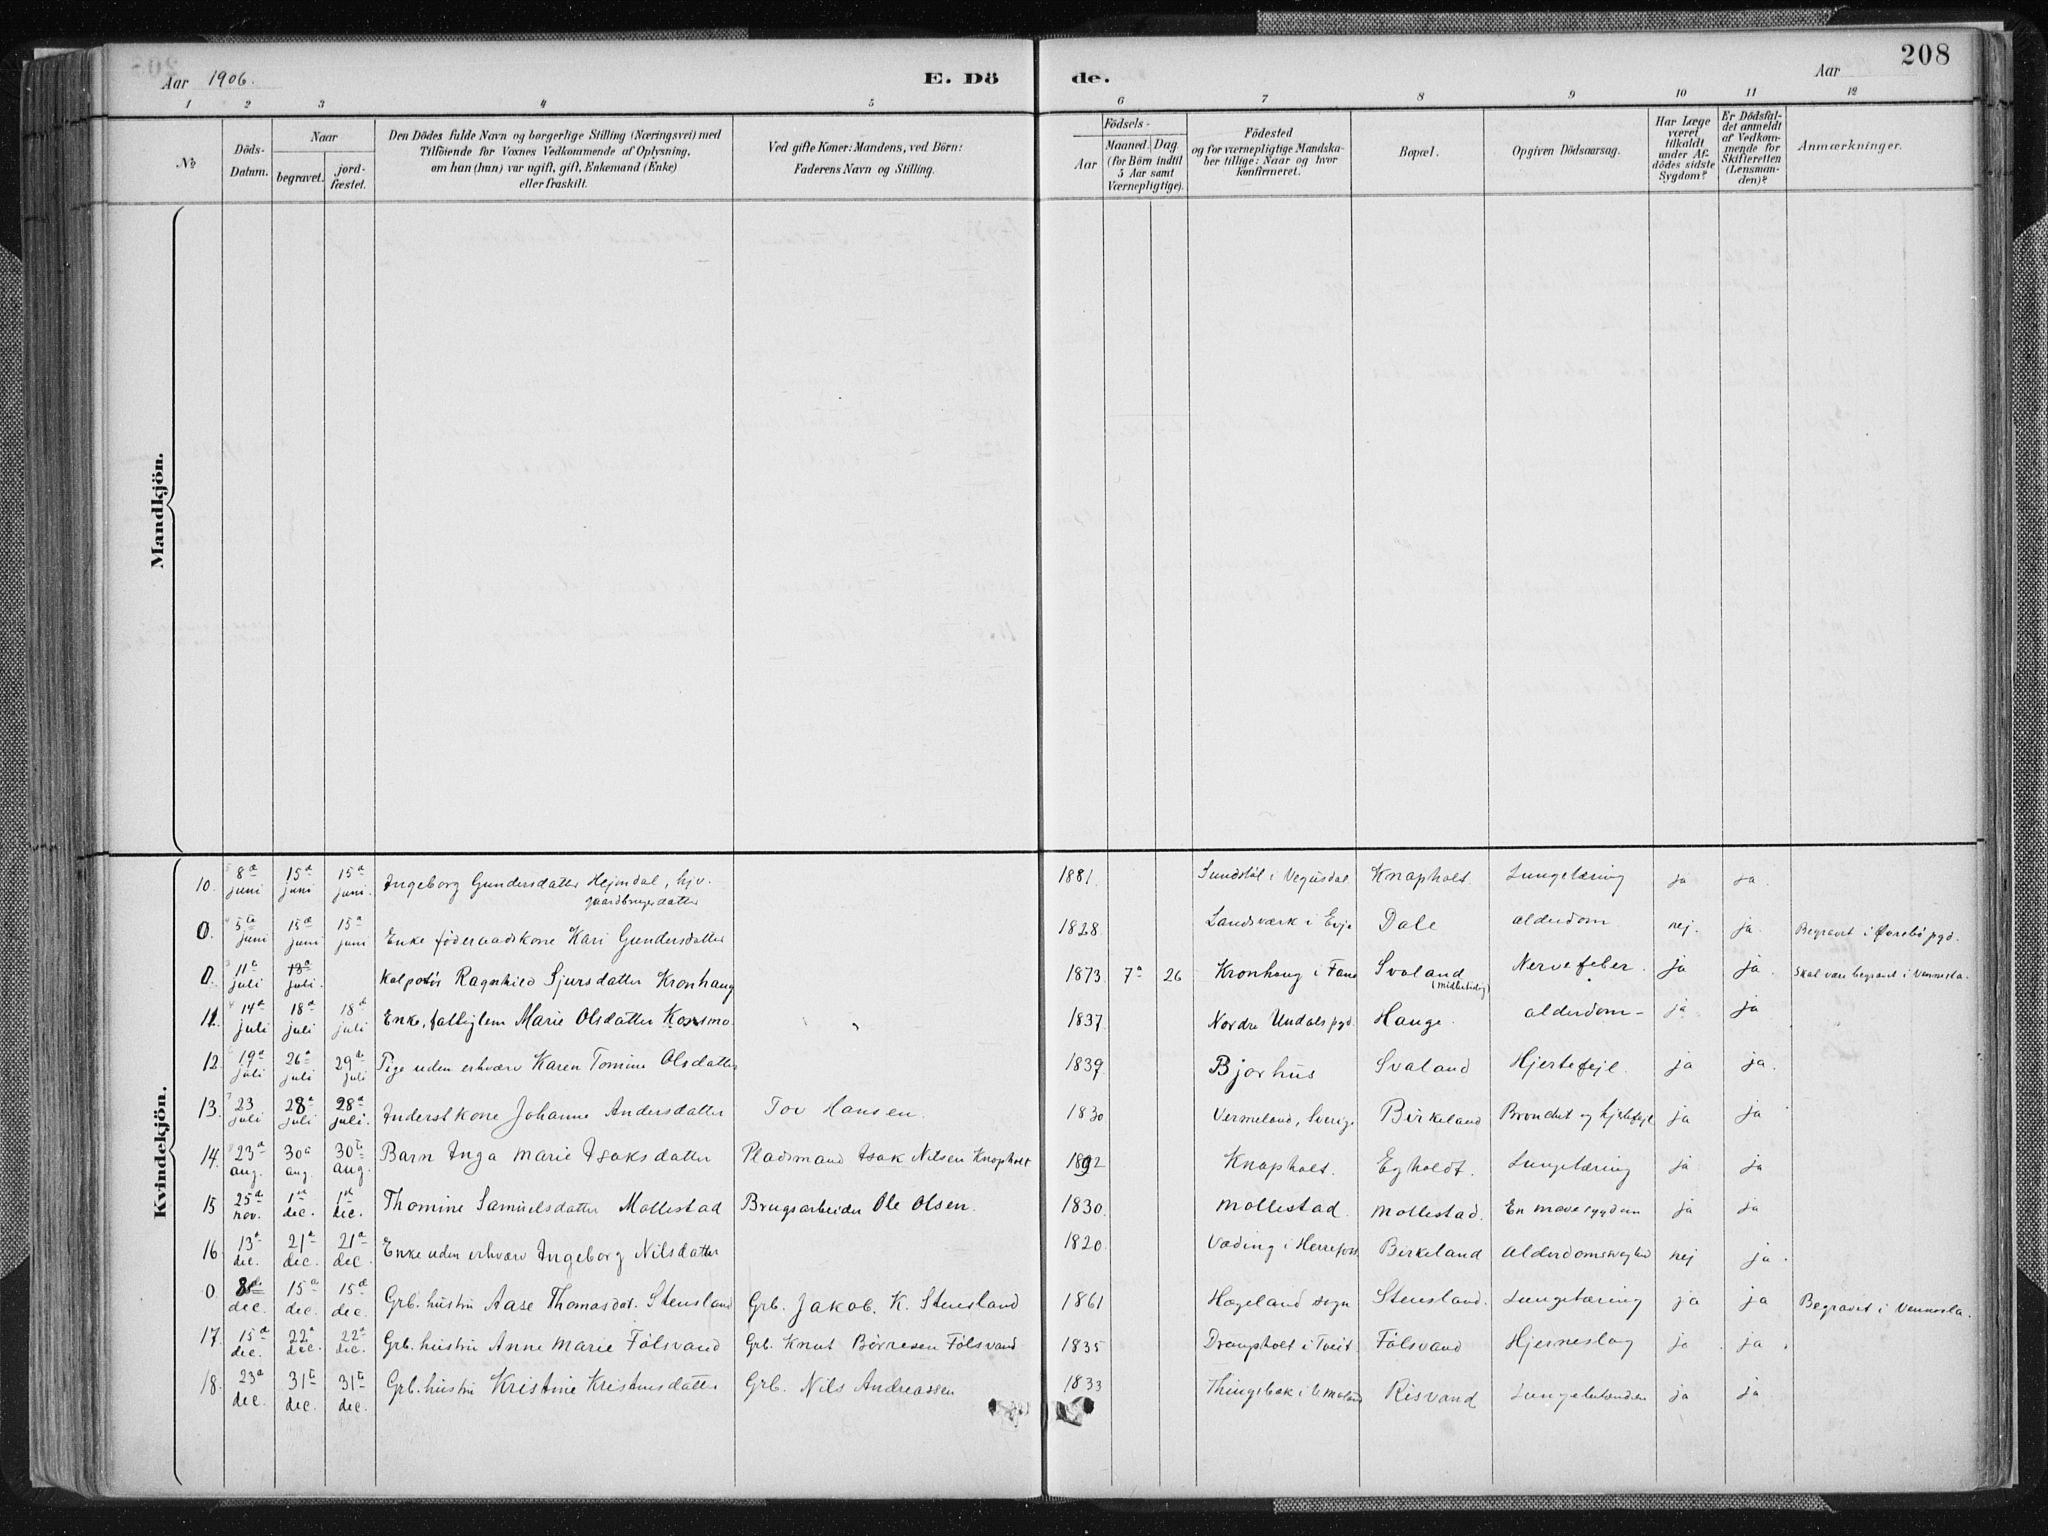 208
Aar 1906. E. Dö de. Aar
1 2 3 4 5 6 7 8 9 10 11 12
No
Döds-Datum.
Naar
begravet. jord-fæstet.
Den Dödes fulde Navn og borgerlige Stilling (Næringsvei) med
Tilföiende for Voxnes Vedkommende af Oplysning,
om han (hun) var ugift, gift, Enkemand (Enke)
eller fraskilt.
Ved gifte Koner: Mandens, ved Börn:
Faderens Navn og Stilling.
Födsels-
Aar Maaned. Dag.
(for Börn indtil
5 Aar samt
Værnepligtige).
Födested
og for værnepligtige Mandska-
ber tillige: Naar og hvor
konfirmeret.
Bopæl.
Opgiven Dödsaarsag.
Har Læge
været
tilkaldt
under Af-
dödes sidste
Sygdom?
Er Dödsfal-
det anmeldt
af Vedkom-
mende for
Skifteretten
(Lensman-
den)?
Anmærkninger.
Mandkjön.
Kvindekjön.
10. 8de juni 15de juni 15de juni. Ingeborg Gundersdatter Hejmdal, hjv. gaardbrugerdatter 1881. Sundstöl i Vegusdal Knapholt. Lungetæring ja ja.
0. 5te juni 15de juni 15de juni Enke föderaadskone Kari Gundersdatter 1828. Landsværk i Evje Dale alderdom nej. ja. Begravet i Øvrebö pgd.
0. 11te juli 18de juli. Ragnhild Sjursdatter Kronhaug 1873 7de 26 Kronhaug i Fane Svaland (midlertidig) Nervefeber. ja ja. Skal være begravet i Vennesla.
11. 14de juli 18de juli 18de juli Enke, fattiglem Marie Olsdatter Konsmo. 1837 Nordre Undals pgd. Hauge. alderdom- ja ja
12. 19de juli 26de juli 29de juli Pige uden erhverv Karen Tomine Olsdatter 1839. Bjorhus Svaland Hjertefejl. ja ja.
13. 23 juli 28de juli 28de juli. Inderstkone Johanne Andersdatter Tov Hansen. 1830 Vermeland, Sverige Birkeland ja ja
14. 23de aug. 30te aug. 30te aug. Barn Inga Marie Isaksdatter Pladsmand Isak Nilsen Knapholt 1892 Knapholt. Egholdt. Lungetæring ja ja
15 25de nov. 1ste dec. 1ste dec. Thomine Samuelsdatter Mollestad Brugsarbeider Ole Olsen. 1830. Mollestad. Mollestad. En mavesygdom ja ja
16. 13de dec. 21de dec. 21de dec. Enke uden erhverv Ingeborg Nilsdatter 1820. Væding i Herrefoss Birkeland nej ja.
0. 8de dec. 15de dec. 15de dec. Grb. hustru Aase Thomasdat. Stensland Grb. Jakob K. Stensland 1861 Hægeland sogn Stensland. Lungetæring ja ja Begravet i Vennesla.
17. 15de dec. 22de dec. 22de dec. Grb. hustru Anne Marie Fölsvand Grb. Knut Börresen Fölsvand 1835 Drangsholt i Tveit. Fölsvand Hjerneslag ja ja.
18. 23de dec. 31te dec. 31te dec. Grb. hustru Kristine Kristensdatter Grb. Nils Andreassen 1833 Risvand ja ja